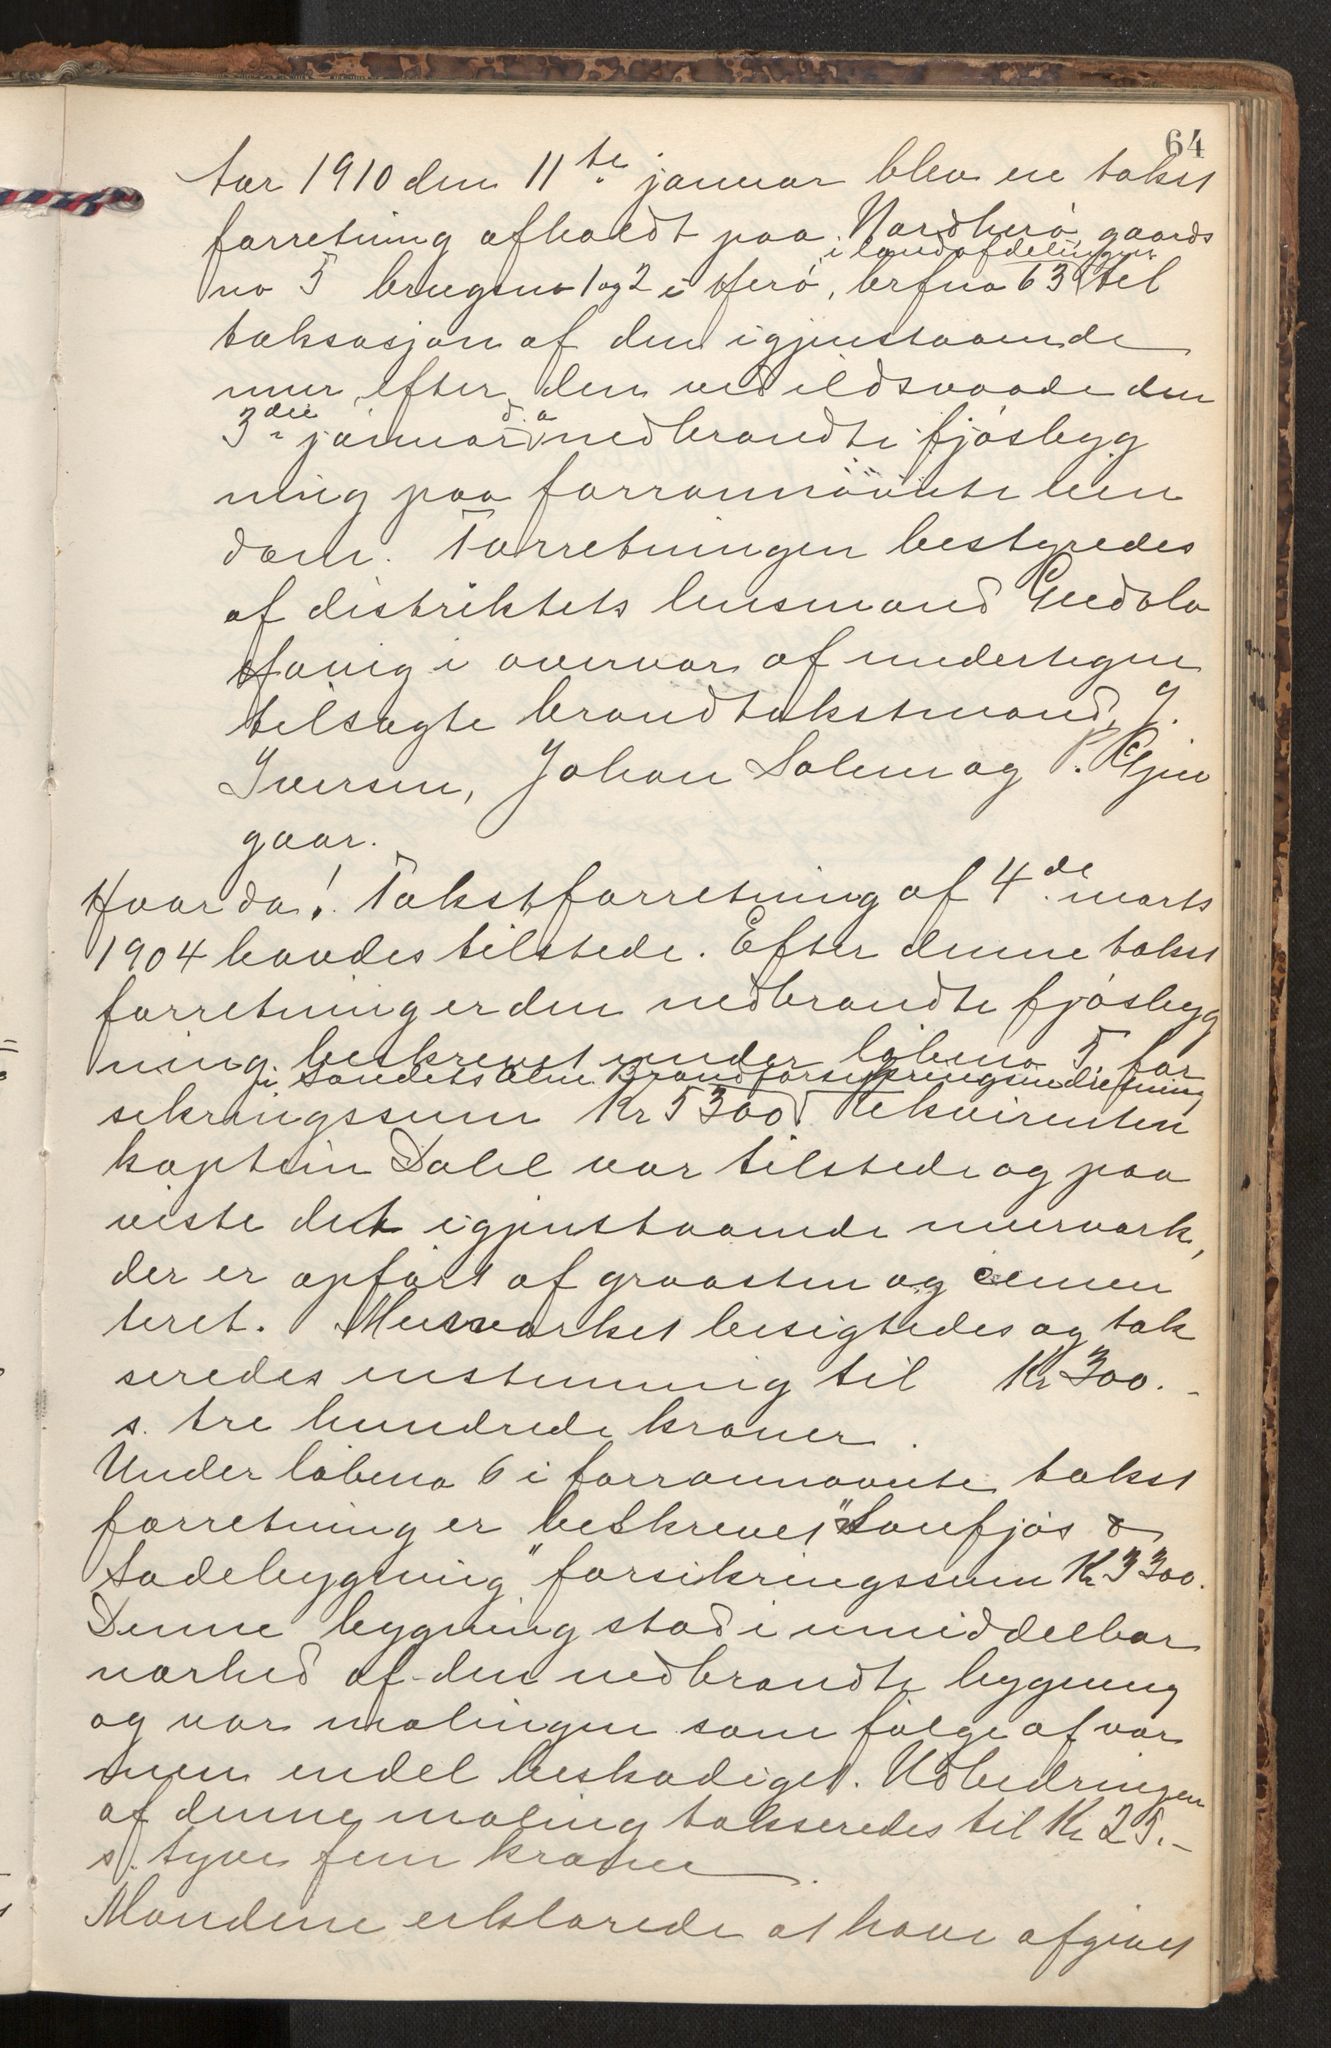 64
Aar 1910 den 11te januar blev en takst
forretning afholdt paa Nordherö, gaards
no 5 brugsno 1 og 2 i Herö, brfno 63 i landafdelingen til
taksasjon af den igjenstaaende
mur efter den ved ildsvaade den
3die januar d. a. nedbrændte fjösbyg
ning paa forrannævnte eien
dom. Forretningen bestyredes
af distriktets lensmand Gudolo
Havig i overvær af undertegnede
tilsagte brandtakstmænd, J.
Iversen, Johan Solem og P. Gjin
gaar.
Hvorda! Takstforretning af 4de marts
1904 havdes tilstede. Efter denne takst
forretning er den nedbrændte fjösbyg
ning beskrevet under löbeno 5, for
i Landets Alm. Brandforsikringsindretning
sikringssum Kr 5300. Rekvirenten
kaptein Dahl var tilstede og paa
viste det igjenstaaende murværk,
der er opfört af graasten og cemen
teret. Murværket besigtedes og tak
seredes enstemmig til Kr 300.-
s. tre hundrede kroner.
Under löbeno 6 i forrannævnte takst
forretning er beskrevet "Saufjös &
Ladebygning" forsikringssum Kr 3300.
Denne bygning stod i umiddelbar
nærhed af den nedbrændte bygning
og var malingen som fölge af var
men endel beskadiget. Udbedringen
af denne maling takseredes til Kr 25.-
s. tyve fem kroner.
Mændene erklærede at have afgivet